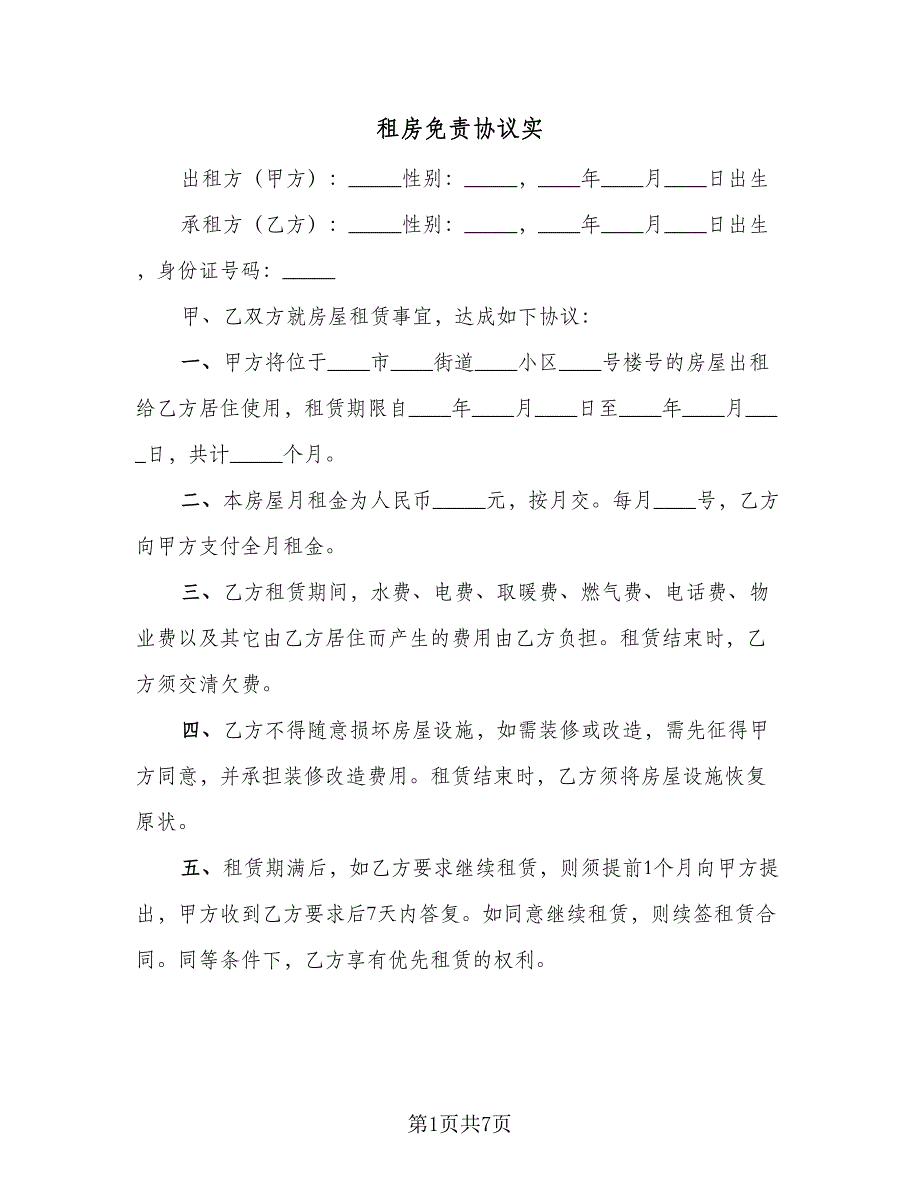 租房免责协议实
出租方（甲方）：_____性别：_____，____年____月____日出生
承租方（乙方）：_____性别：_____，____年____月____日出生
，身份证号码：_____
甲、乙双方就房屋租赁事宜，达成如下协议：
一、甲方将位于____市____街道____小区____号楼号的房屋出租
给乙方居住使用，租赁期限自____年____月____日至____年____月___
_日，共计_____个月。
二、本房屋月租金为人民币_____元，按月交。每月____号，乙方
向甲方支付全月租金。
三、乙方租赁期间，水费、电费、取暖费、燃气费、电话费、物
业费以及其它由乙方居住而产生的费用由乙方负担。租赁结束时，乙
方须交清欠费。
四、乙方不得随意损坏房屋设施，如需装修或改造，需先征得甲
方同意，并承担装修改造费用。租赁结束时，乙方须将房屋设施恢复
原状。
五、租赁期满后，如乙方要求继续租赁，则须提前1个月向甲方提
出，甲方收到乙方要求后7天内答复。如同意继续租赁，则续签租赁合
同。同等条件下，乙方享有优先租赁的权利。
第1页共7页